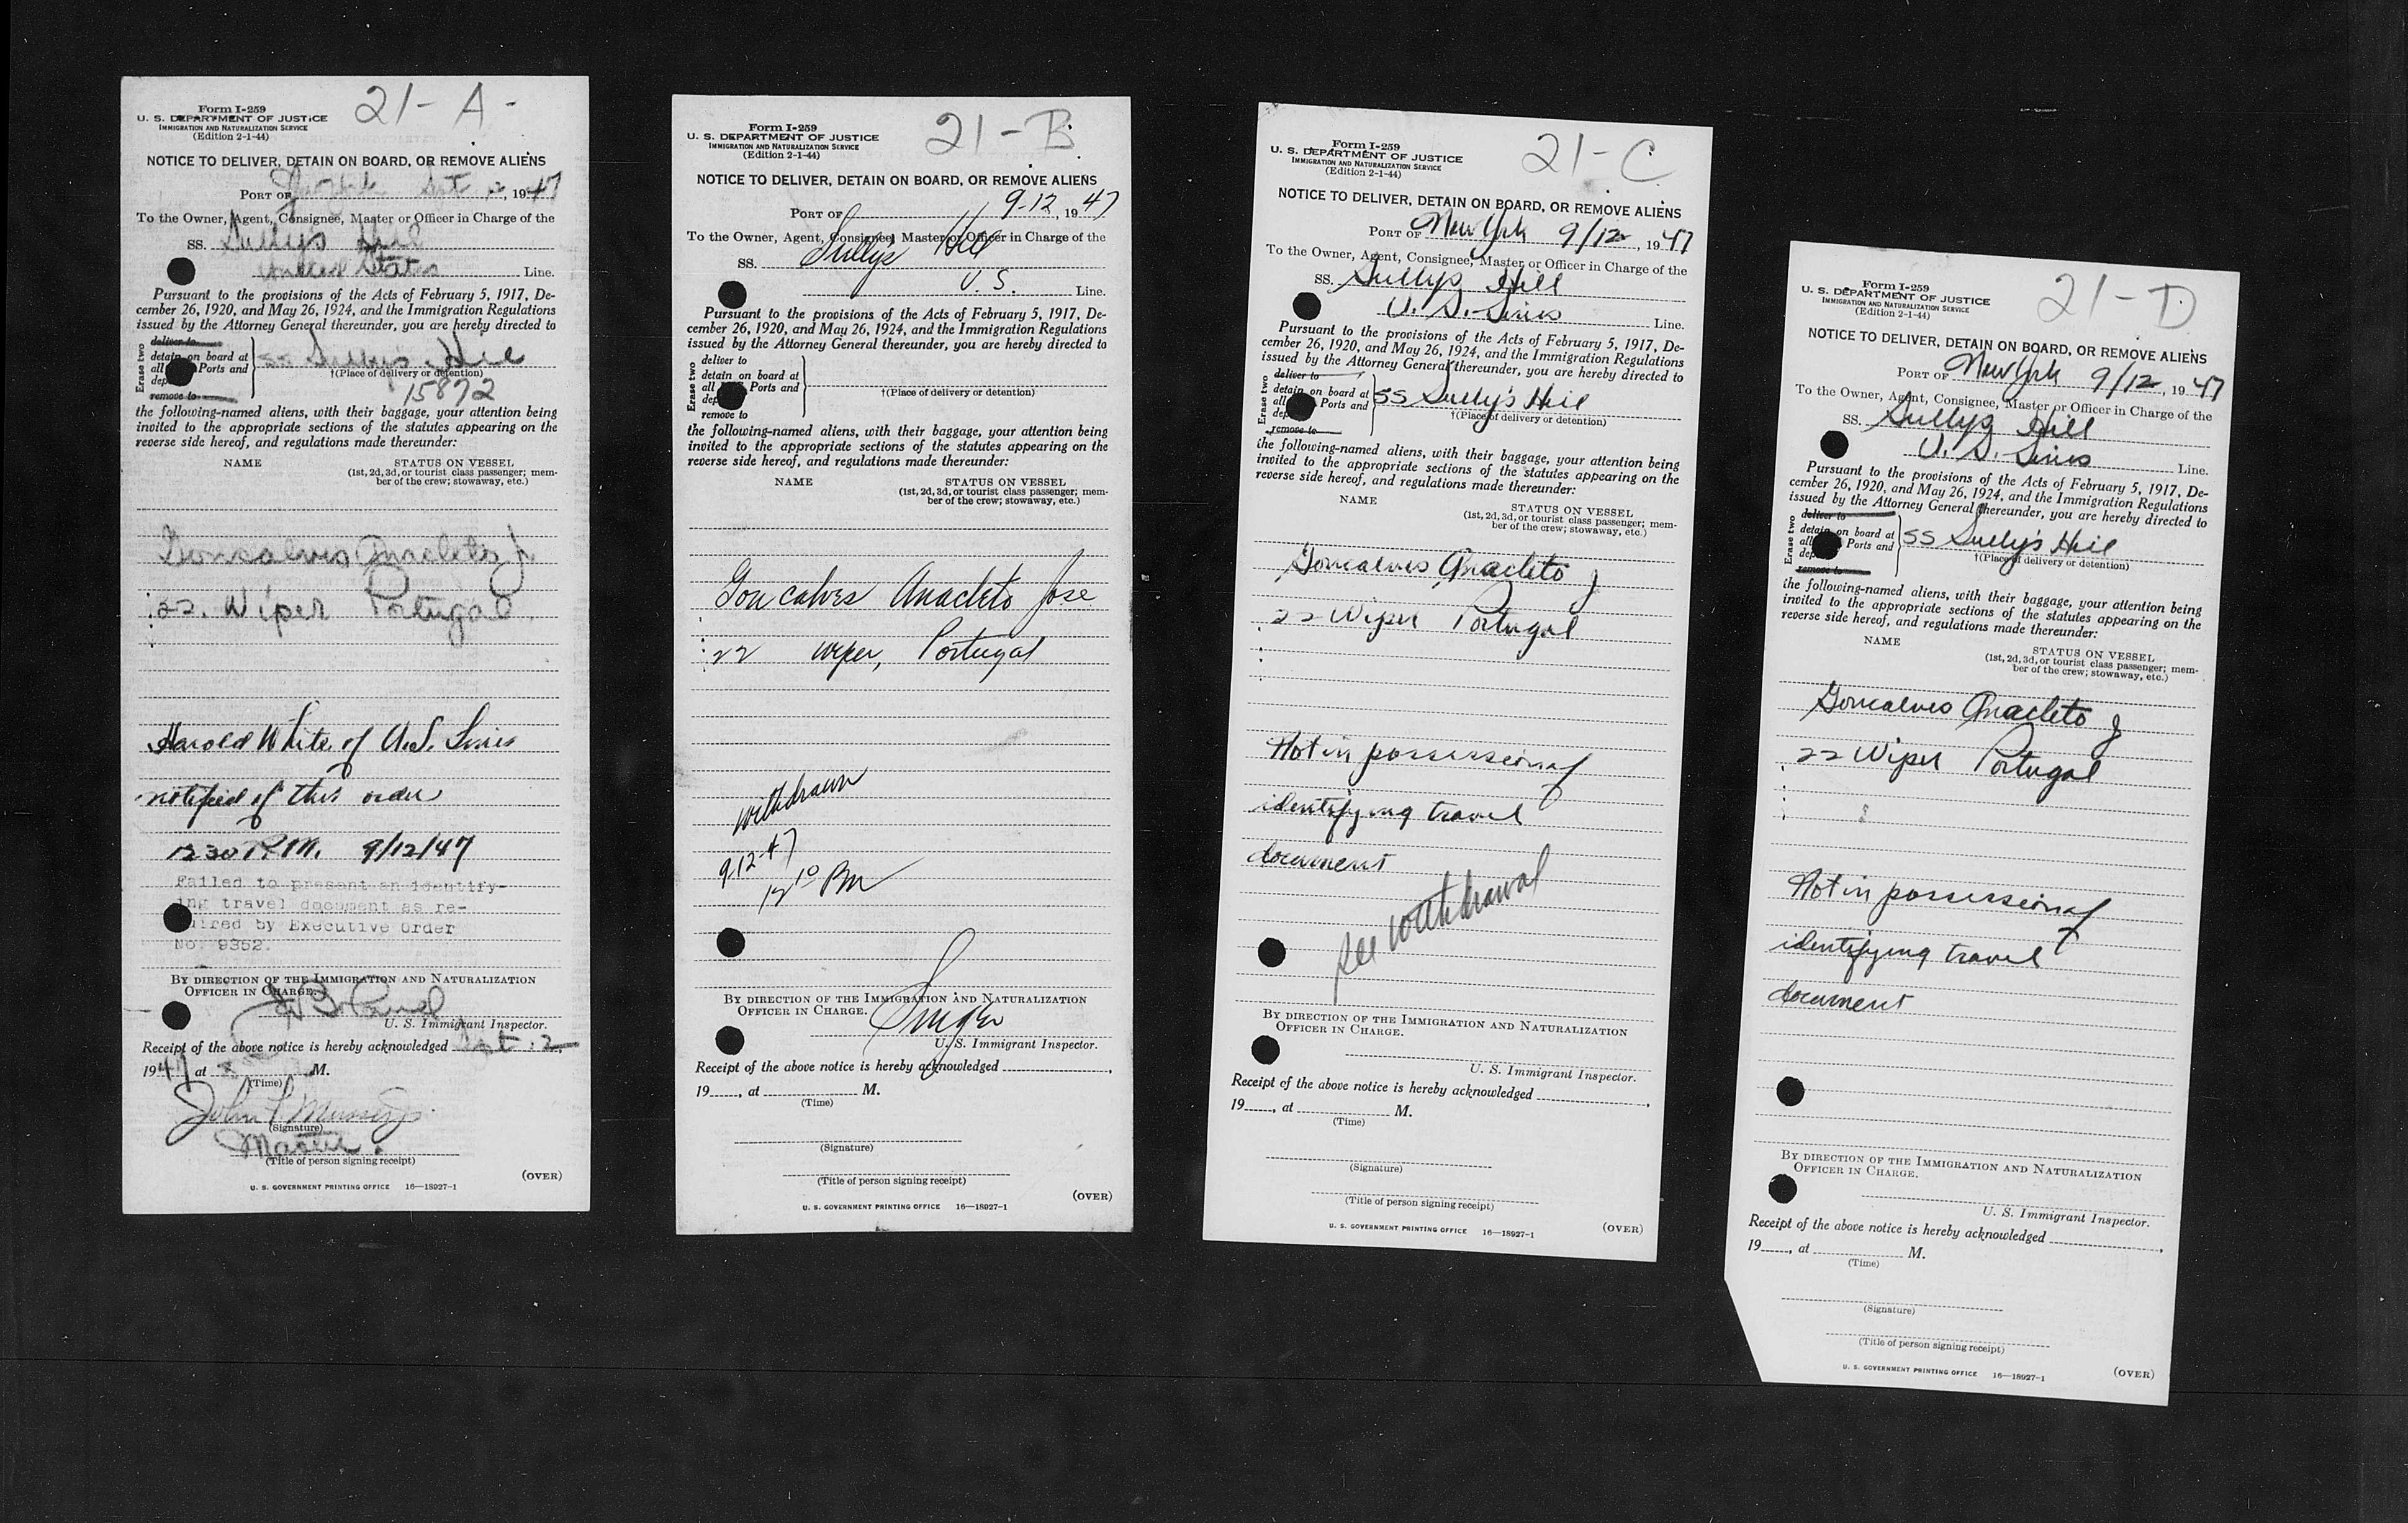 21-A-
Form I-259
U. S. DEPARTMENT OF JUSTICE
IMMIGRATION AND NATURALIZATION SERVICE
(Edition 2-1-44)
NOTICE TO DELIVER, DETAIN ON BOARD, OR REMOVE ALIENS
PORT OF New York Sept 12, 1947
To the Owner, Agent, Consignee, Master or Officer in Charge of the
SS. Sullys Hill
United States Line.
Pursuant to the provisions of the Acts of February 5, 1917, De-
cember 26, 1920, and May 26, 1924, and the Immigration Regulations
issued by the Attorney General thereunder, you are hereby directed to
Erase two
deliver to
detain on board at
all Ports and
dep
remove to
SS Sullys Hill
†(Place of delivery or detention)
15872
the following-named aliens, with their baggage, your attention being
invited to the appropriate sections of the statutes appearing on the
reverse side hereof, and regulations made thereunder:
NAME STATUS ON VESSEL
(1st, 2d, 3d, or tourist class passenger; mem-
ber of the crew; stowaway, etc.)
Goncalves Anacleto J.
22. Wiper Portugal.
Harold White of U.S. Lines
notified of this order
1230 P.M. 9/12/47
Failed to present an identify-
ing travel document as re-
uired by Executive Order
No. 9352.
BY DIRECTION OF THE IMMIGRATION AND NATURALIZATION
OFFICER IN CHARGE.
U. S. Immigrant Inspector.
Receipt of the above notice is hereby acknowledged Sept 12,
1947 at M.
(Time)
John
(Signature)
Master.
(Title of person signing receipt)
(OVER)
U. S. GOVERNMENT PRINTING OFFICE 16—18927-1
21-B
Form I-259
U. S. DEPARTMENT OF JUSTICE
IMMIGRATION AND NATURALIZATION SERVICE
(Edition 2-1-44)
NOTICE TO DELIVER, DETAIN ON BOARD, OR REMOVE ALIENS
PORT OF 9-12, 1947
To the Owner, Agent, Consignee, Master or Officer in Charge of the
SS. Sullys Hill
U. S. Line.
Pursuant to the provisions of the Acts of February 5, 1917, De-
cember 26, 1920, and May 26, 1924, and the Immigration Regulations
issued by the Attorney General thereunder, you are hereby directed to
Erase two
deliver to
detain on board at
all Ports and
dep
remove to
†(Place of delivery or detention)
the following-named aliens, with their baggage, your attention being
invited to the appropriate sections of the statutes appearing on the
reverse side hereof, and regulations made thereunder:
NAME STATUS ON VESSEL
(1st, 2d, 3d, or tourist class passenger; mem-
ber of the crew; stowaway, etc.)
Goncalves Anacleto Jose
22 wiper, Portugal
Withdrawn
9-12-47
12 10 PM
BY DIRECTION OF THE IMMIGRATION AND NATURALIZATION
OFFICER IN CHARGE.
U. S. Immigrant Inspector.
Receipt of the above notice is hereby acknowledged
19, at M.
(Time)
(Signature)
(Title of person signing receipt)
(OVER)
U. S. GOVERNMENT PRINTING OFFICE 16—18927-1
21-C
Form I-259
U. S. DEPARTMENT OF JUSTICE
IMMIGRATION AND NATURALIZATION SERVICE
(Edition 2-1-44)
NOTICE TO DELIVER, DETAIN ON BOARD, OR REMOVE ALIENS
PORT OF New York 9/12, 1947
To the Owner, Agent, Consignee, Master or Officer in Charge of the
SS. Sullys Hill
U. S. Lines Line.
Pursuant to the provisions of the Acts of February 5, 1917, De-
cember 26, 1920, and May 26, 1924, and the Immigration Regulations
issued by the Attorney General thereunder, you are hereby directed to
Erase two
deliver to
detain on board at
all Ports and
dep
remove to
SS Sully's Hill
†(Place of delivery or detention)
the following-named aliens, with their baggage, your attention being
invited to the appropriate sections of the statutes appearing on the
reverse side hereof, and regulations made thereunder:
NAME STATUS ON VESSEL
(1st, 2d, 3d, or tourist class passenger; mem-
ber of the crew; stowaway, etc.)
Goncalves Anacleto J
22 Wiper Portugal
Not in possession of
identifying travel
document
See withdrawal
BY DIRECTION OF THE IMMIGRATION AND NATURALIZATION
OFFICER IN CHARGE.
U. S. Immigrant Inspector.
Receipt of the above notice is hereby acknowledged
19, at M.
(Time)
(Signature)
(Title of person signing receipt)
(OVER)
U. S. GOVERNMENT PRINTING OFFICE 16—18927-1
21-D
Form I-259
U. S. DEPARTMENT OF JUSTICE
IMMIGRATION AND NATURALIZATION SERVICE
(Edition 2-1-44)
NOTICE TO DELIVER, DETAIN ON BOARD, OR REMOVE ALIENS
PORT OF New York 9/12, 1947
To the Owner, Agent, Consignee, Master or Officer in Charge of the
SS. Sullys Hill
U. S. Lines Line.
Pursuant to the provisions of the Acts of February 5, 1917, De-
cember 26, 1920, and May 26, 1924, and the Immigration Regulations
issued by the Attorney General thereunder, you are hereby directed to
Erase two
deliver to
detain on board at
all Ports and
dep
remove to
SS Sully's Hill
†(Place of delivery or detention)
the following-named aliens, with their baggage, your attention being
invited to the appropriate sections of the statutes appearing on the
reverse side hereof, and regulations made thereunder:
NAME STATUS ON VESSEL
(1st, 2d, 3d, or tourist class passenger; mem-
ber of the crew; stowaway, etc.)
Goncalves Anacleto J
22 Wiper Portugal
Not in possession of
identifying travel
document
BY DIRECTION OF THE IMMIGRATION AND NATURALIZATION
OFFICER IN CHARGE.
U. S. Immigrant Inspector.
Receipt of the above notice is hereby acknowledged
19, at M.
(Time)
(Signature)
(Title of person signing receipt)
(OVER)
U. S. GOVERNMENT PRINTING OFFICE 16—18927-1